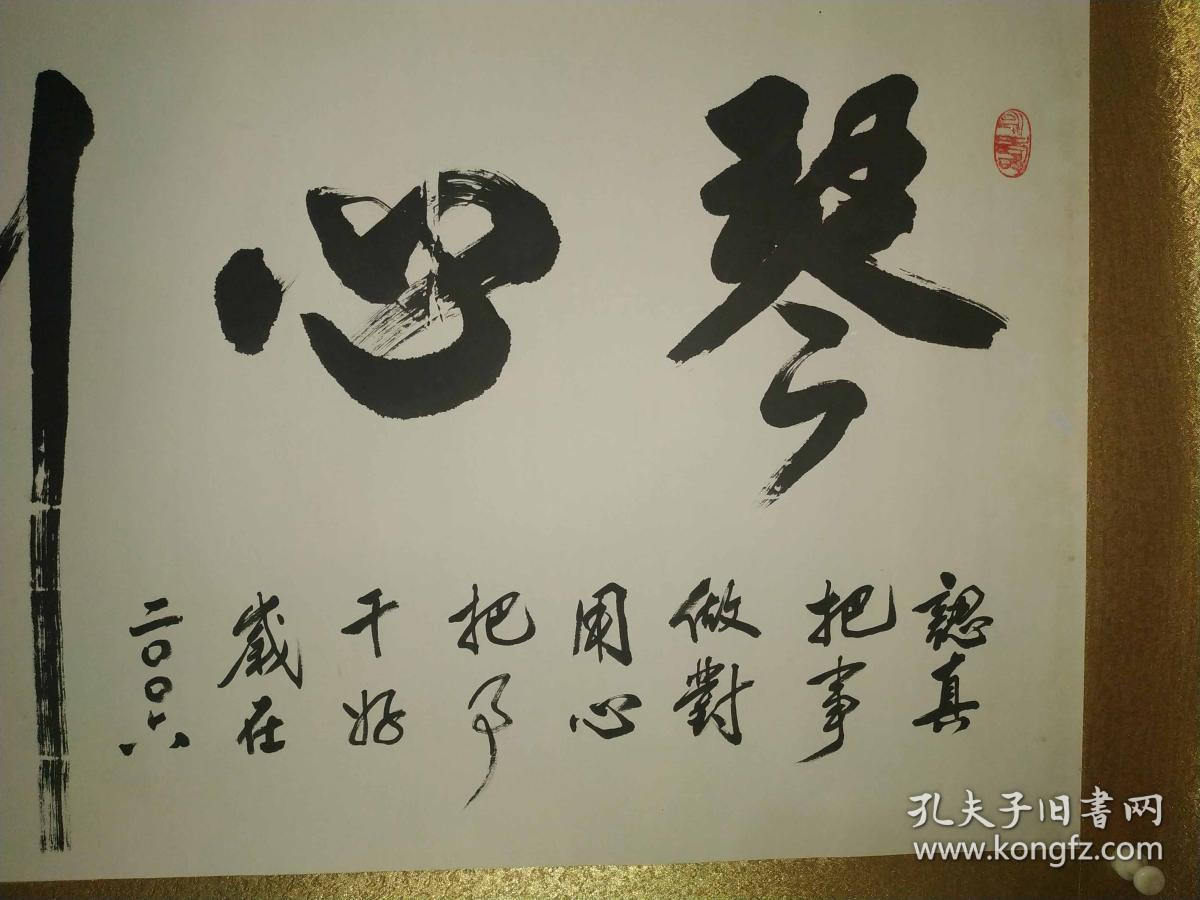 琴心
認真
把事
做對
用心
把事
干好
歲在
二〇〇六
孔夫子旧书网
www.kongfz.com